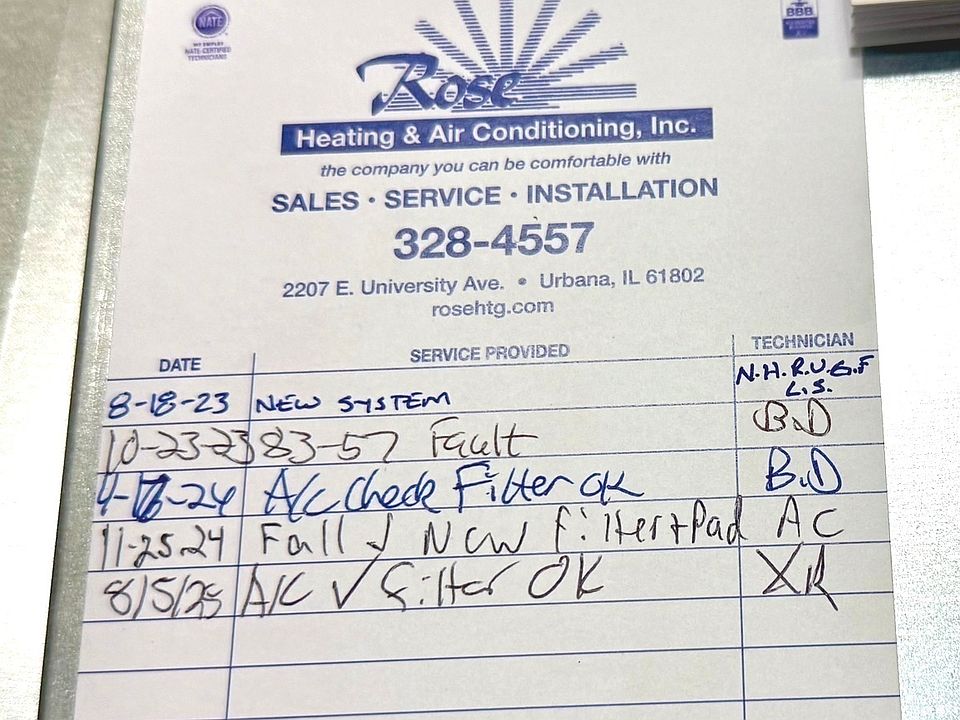 NATE
WE EMPLOY
NATE-CERTIFIED
TECHNICIANS
BBB
Rose
Heating & Air Conditioning, Inc.
the company you can be comfortable with
SALES • SERVICE • INSTALLATION
328-4557
2207 E. University Ave. • Urbana, IL 61802
rosehtg.com
DATE SERVICE PROVIDED TECHNICIAN
8-18-23 NEW SYSTEM N.H. R.U. G.F L.S.
10-23-23 83-57 Fault B.D
A/C Check Filter OK B.D
11-25-24 Fall ✓ New filter + Pad AC
8/5/25 A/C ✓ Filter OK XR